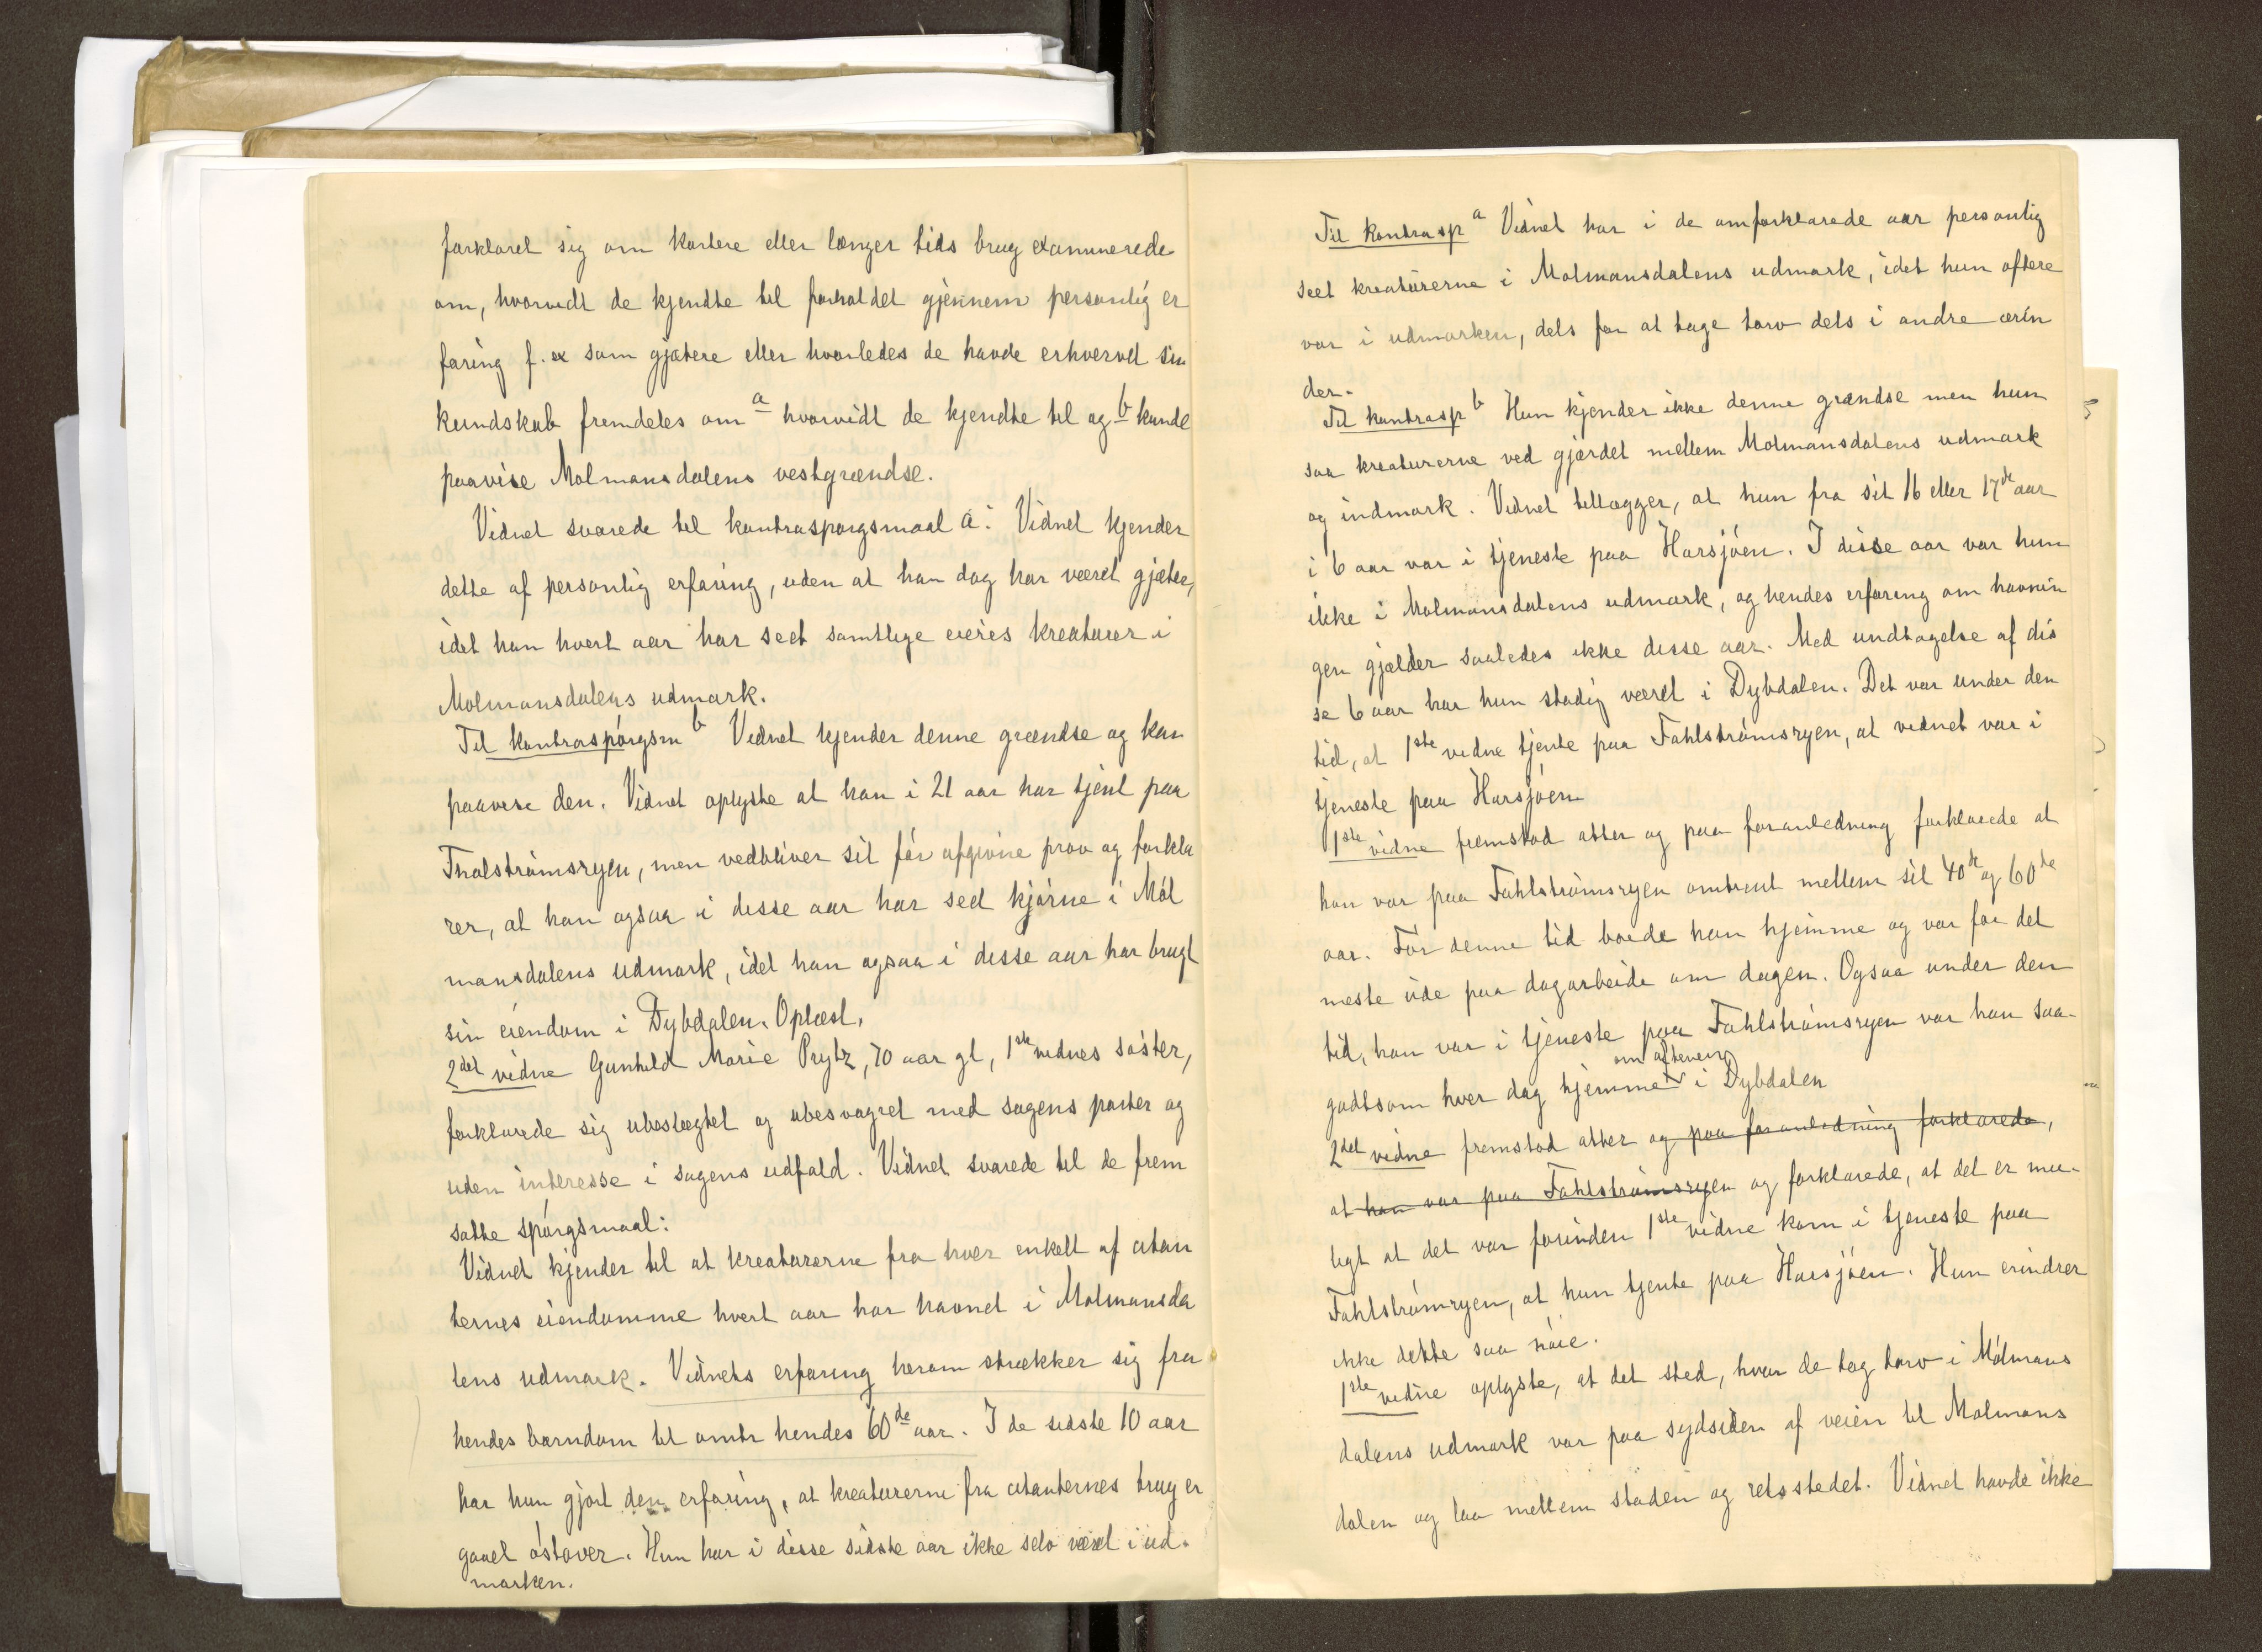 forklaret sig om kortere eller længer tids brug examinerede
om, hvorvidt de kjendte til forholdet gjennem personlig er
faring f. ex som gjætere eller hvorledes de havde erhvervet sin
kundskab fremdeles om a hvorvidt de kjendte til og b kunde
paavise Molmansdalens vestgrændse.
Vidnet svarede til kontraspørgsmaal a: Vidnet kjender
dette af personlig erfaring, uden at han dog har været gjæter,
idet han hvert aar har seet samtlige eieres kreaturer i
Molmansdalens udmark.
Til kontraspørgsm b Vidnet kjender denne grændse og kan
paavise den. Vidnet oplyste at han i 21 aar har tjent paa
Thalstrømsryen, men vedbliver sit før afgivne prov og forkla
rer, at han ogsaa i disse aar har seet kjørne i Møl
mansdalens udmark, idet han ogsaa i disse aar har brugt
sin eiendom i Dybdalen. Oplæst.
2det vidne Gunhild Marie Prytz, 70 aar gl, 1ste vidnes søster,
forklarede sig ubeslegtet og ubesvogret med sagens parter og
uden interesse i sagens udfald. Vidnet svarede til de frem
satte spørgsmaal:
Vidnet kjender til at kreaturerne fra hver enkelt af citan
ternes eiendomme hvert aar har havnet i Molmansda
lens udmark. Vidnets erfaring herom strækker sig fra
hendes barndom til omtr hendes 60de aar. I de sidste 10 aar
har hun gjort den erfaring, at kreaturerne fra citanternes brug er
gaaet østover. Hun har i disse sidste aar ikke selv været i ud-
marken.
Til kontrasp a Vidnet har i de omforklarede aar personlig
seet kreaturerne i Molmansdalens udmark, idet hun oftere
var i udmarken, dels for at tage torv dels i andre ærin
der.
Til kontrasp b Hun kjender ikke denne grændse men hun
saa kreaturerne ved gjærdet mellem Molmansdalens udmark
og indmark. Vidnet tillægger, at hun fra sit 16 eller 17de aar
i 6 aar var i tjeneste paa Harsjøen. I disse aar var hun
ikke i Molmansdalens udmark, og hendes erfaring om havnin
gen gjælder saaledes ikke disse aar. Med undtagelse af dis
se 6 aar har hun stadig været i Dybdalen. Det var under den
tid, at 1ste vidne tjente paa Fahlstrømsryen, at vidnet var i
tjeneste paa Harsjøen
1ste vidne fremstod atter og paa foranledning forklarede at
han var paa Fahlstrømsryen omtrent mellem sit 40de og 60de
aar. Før denne tid boede han hjemme og var for det
meste ude paa dagarbeide om dagen. Ogsaa under den
tid, han var i tjeneste paa Fahlstrømsryen var han saa-
godtsom hver dag hjemme om aftenen i Dybdalen
2det vidne fremstod atter og paa foranledning forklarede,
at han var paa Fahlstrømsryen og forklarede, at det er mu-
ligt at det var forinden 1ste vidne kom i tjeneste paa
Fahlstrømryen, at hun tjente paa Harsjøen. Hun erindrer
ikke dette saa nøie.
1ste vidne oplyste, at det sted, hvor de tog torv i Mølmans
dalens udmark var paa sydsiden af veien til Molmans
dalen og laa mellem staden og retsstedet. Vidnet havde ikke